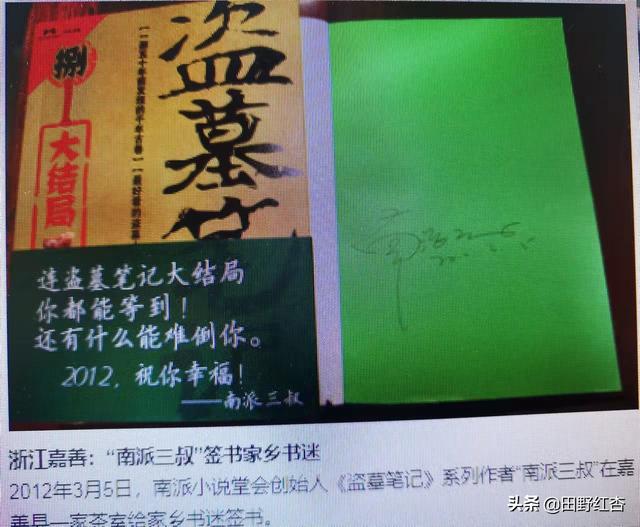 捌
大结局
盗墓笔
连盗墓笔记大结局
你都能等到！
还有什么能难倒你。
2012，祝你幸福！
——南派三叔
浙江嘉善：“南派三叔”签书家乡书迷
2012年3月5日，南派小说堂会创始人《盗墓笔记》系列作者“南派三叔”在嘉
善县一家茶室给家乡书迷签书。
头条 @田野红杏